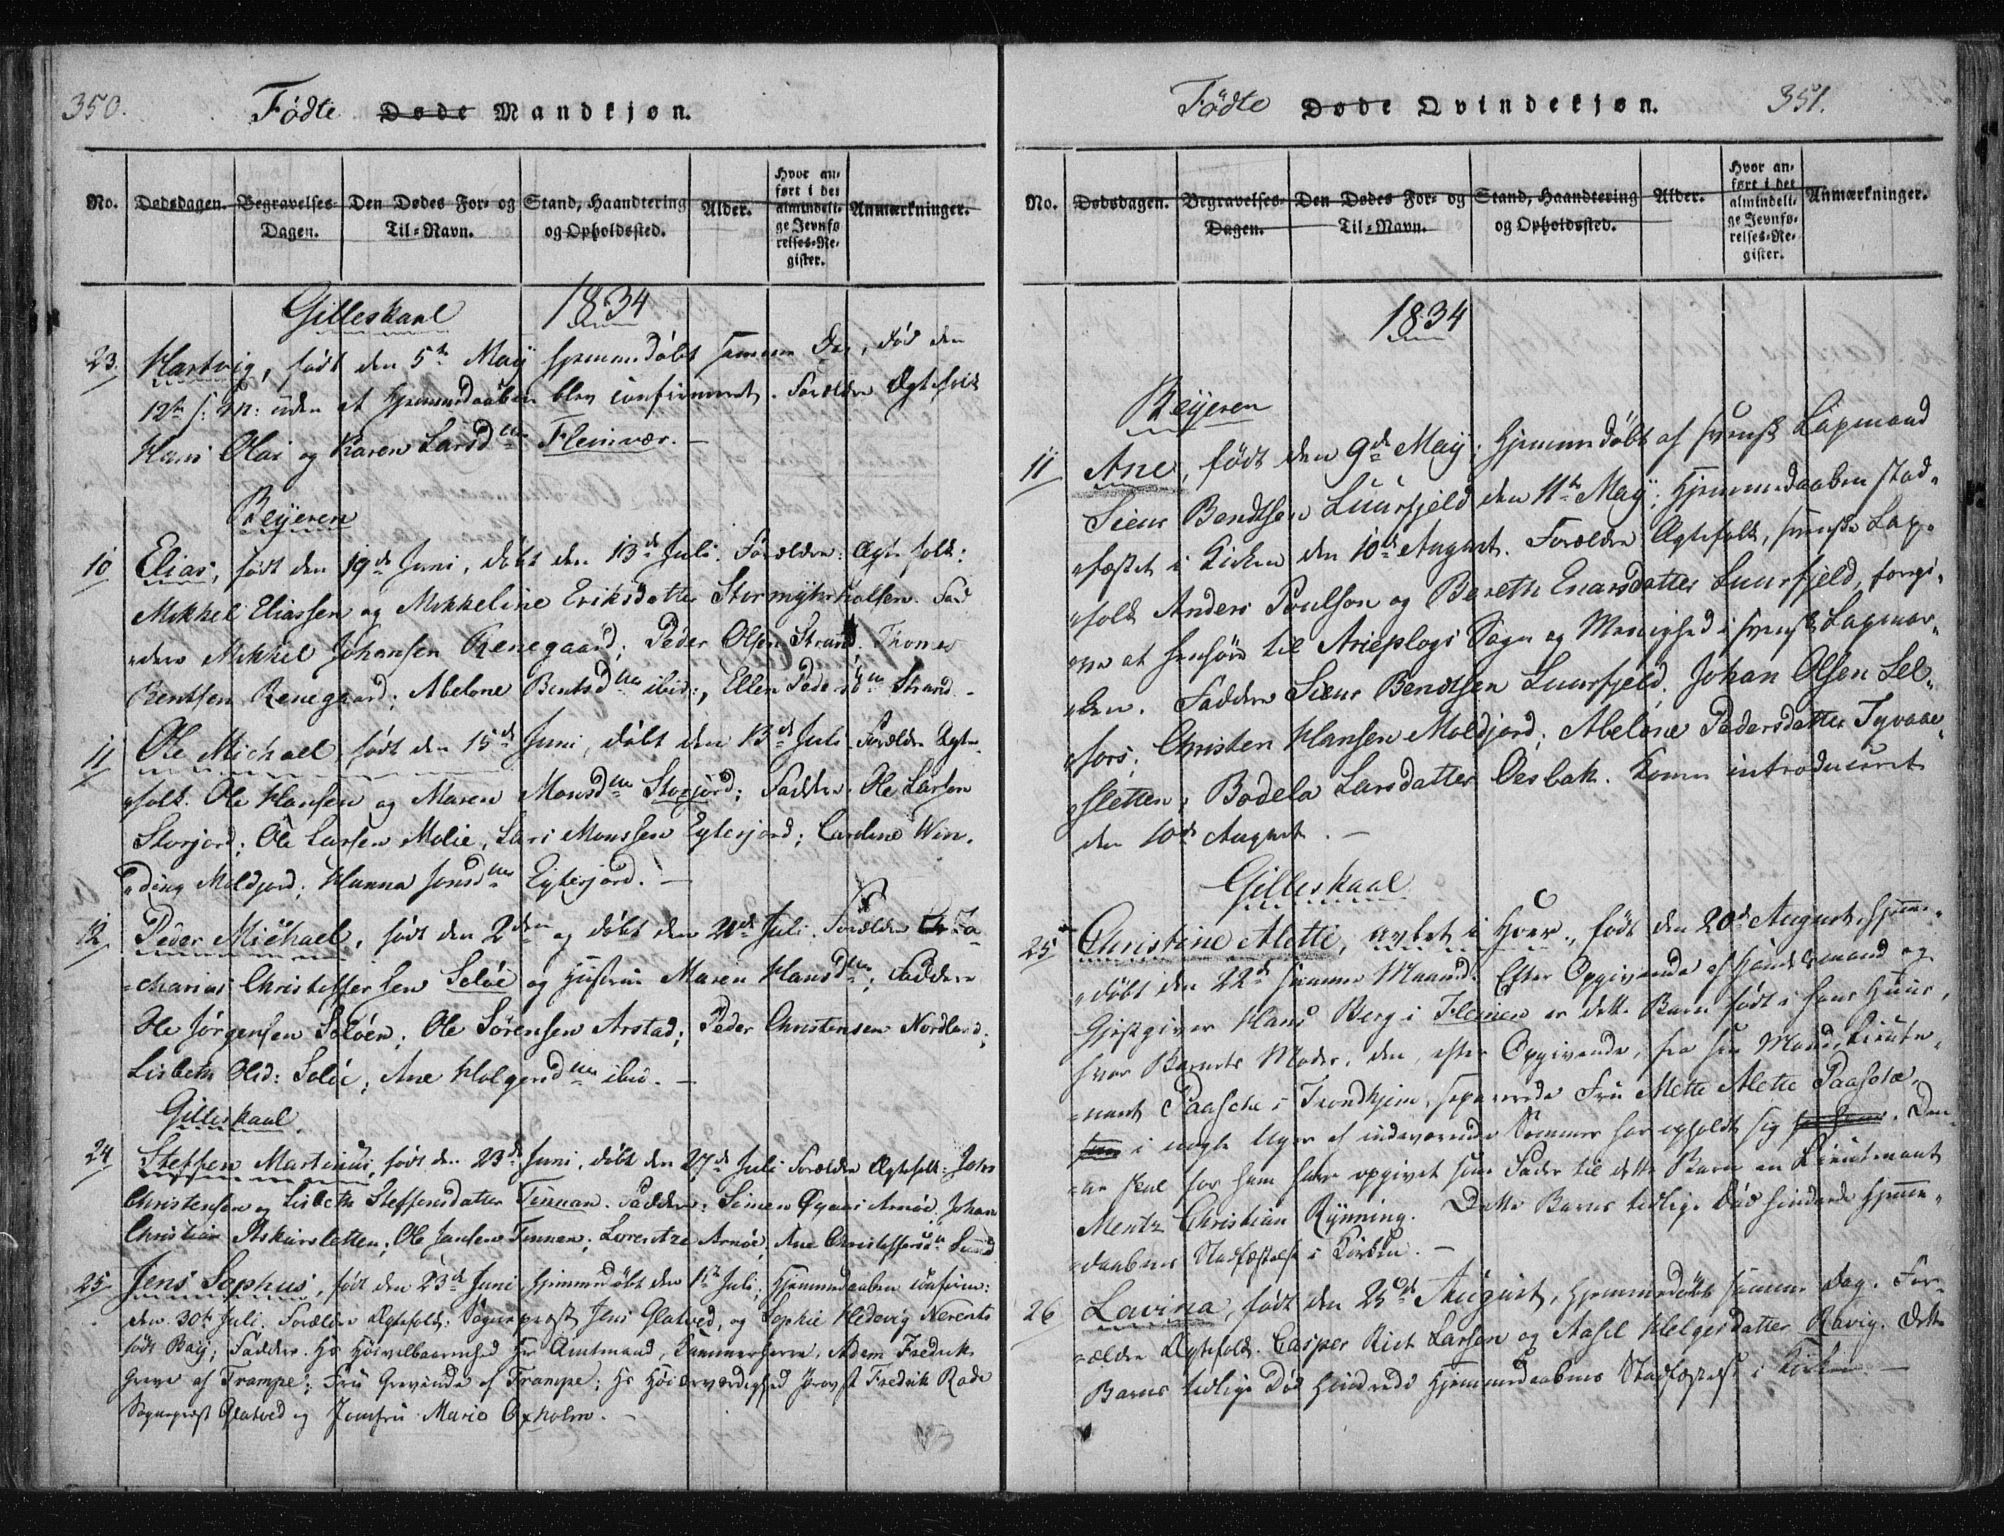 350.
Födte ~~Døde~~ Mandkjøn.
No. Dødsdagen. Begravelses Dagen. Den Dødes For- og Til-Navn. Stand, Haandtering og Opholdssted. Alder. Hvor anført i det almindelige Jevnførelses-Register. Anmærkninger.
Gilleskaal 1834
23. Hartvig, født den 5te Maÿ hjemmedøbt samme Dag, død den
12te s: M: uden at Hjemmedaaben blev confirmeret. Forældre Ægtefolk
Hans Olai og Karen Larsdtr Fleinvær. —
Beÿeren
10 Elias, født den 19de Juni, døbt den 13de Juli. Forældre: Ægtefolk:
Mikkel Eliassen og Mikkeline Eriksdatter Stormÿhrholsen. Fad-
dere Mikkel Johansen Renegaard; Peder Olsen Strand. Thomas
Bentsen Renegaard; Abelone Bentsdtr ibid:, Ellen Pedersdtr Strand. -
11 Ole Michael født den 15de Juni, døbt den 13de Juli. Forældre Ægte-
folk. Ole Hansen og Maren Monsdtr Storjord; Faddere. Ole Larsen
Storjord; Ole Larsen Molie, Lars Monssen Eÿterjord; Caroline Win-
ding Moldjord; Hanna Jonsdtr Eÿterjord. —
12 Peder Michael, født den 2den og døbt den 20de Juli. Forældre Za-
charias Christoffersen Soløe og Hustrue Maren Hansdtr; Faddere
Ole Jørgensen Soløen; Ole Sørensen Arstad; Peder Christensen Nordland;
Lisbeth Olsd: Soløe; Ane Holgersdtr ibid. —
Gilleskaal.
24 Steffen Martinus, født den 23de Juni, døbt den 27de Juli. Forældre Ægtefolk: John
Christensen og Lisbeth Steffensdatter Finnan. Faddere: Simen Arnøe, Johan
Christian Askarsletten; Ole Jansen Finnan; Lorentze Arnøe, Ane Christoffersdr Sund
25 Jens Sophus, født den 23de Juni, hjemmedøbt den 1te Juli; Hjemmedaaben confirm:
den 30te Juli. Forældre Ægtefolk: Sogneprest Jens Glatved, og Sophie Hedevig Nerents
født Baÿ; Faddere. Hs Høivelbaarenhed Hr Amtmand, Kammerherre, Adam Fredrik
Greve af Trampe; Frü Grevinde af Trampe; Hs Høiærværdighed Provst Fredrik Rode
Sogneprest Glatved og Jomfru Marie Oxholm. —
351.
Födte ~~Døde~~ Qvindekjøn.
No. Dødsdagen. Begravelses-Dagen. Den Dødes For- og Til-Navn. Stand, Haandtering og Opholdssted. Alder. Hvor anført i det almindelige Jevnførelses-Register. Anmærkninger.
1834
Beÿeren
11 Ane, født den 9de Maÿ; hjemmedøbt af svensk Lapmand
Sieur Bendtsen Luurfjeld den 11te Maÿ; Hjemmedaaben stad-
fæstet i Kirken den 10de August. Forældre Ægtefolk, svenske Lap-
folk Anders Poulson og Berethe Enarsdatter Luurfjeld, foregi-
vne at henhøre til Arieplogs Sogn og Menighed i svensk Lapmar-
ken. Faddere Sieur Bendtsen Luurfjeld. Johan Olsen Sel-
fors; Christen Hansen Moldjord; Abelone Pedersdatter Tvervaae-
sletten; Bodela Larsdatter Oesbak. Konen introduceret
den 10de August. —
Gilleskaal
25 Christine Alette, avlet i Hoer., født den 20de August, hjemme-
døbt den 22de samme Maaned. Efter Opgivende af Handelsmand og
Gjestgiver Hans Berg i Fleinen er dette Barn født i hans Huus,
hvor Barnets Moder, den, efter Opgivende, fra sin Mand, Lieute-
nant Paasche i Trondhjem, separerede Fru Mette Alette Paasche,
i nogle Uger af indeværende Sommer har opholdt sig. Den-
ne skal for ham have opgivet som Fader til dette Barn en Lieutenant
Mentz Christian Rÿnning. Dette Barns tidlige Død hindrede Hjemme-
daabens Stadfæstelse i Kirken. —
26 Lavina, født den 25de August, hjemmedøbt samme Dag. For-
ældre Ægtefolk. Casper Rist Larsen og Aasel Helgesdatter Ravig. Dette
Barns tidlige Død hindrede Hjemmedaabens Stadfæstelse i Kirken. —